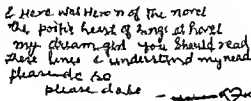 & Here was Hero n of the novel
the poetic heart of kings at hovel
my dream girl you should read
these lines & understand my need
please do so
please do